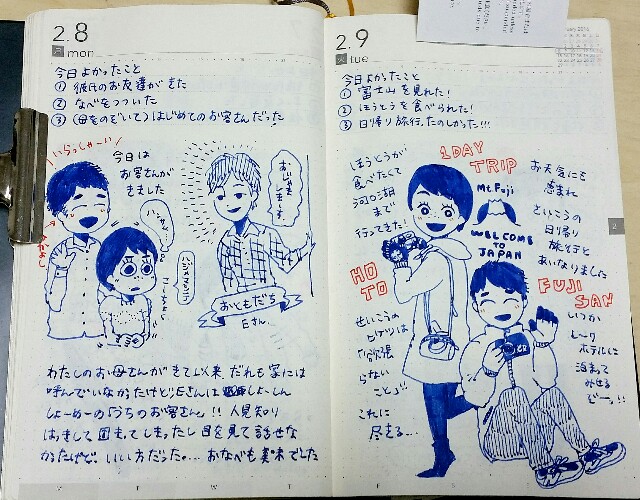 2.8
月 mon
今日よかったこと
① 彼氏のお友達がきた
② なべをつついた
③ (母をのぞいて)はじめてのお客さんだった!
いらっしゃーい
今日は
お客さんが
きました
おじゃま
します。
おともだち
Eさん
わたしのお母さんがきて以来、だれも家には
呼んでいなかったけど、Eさんは しょーしん
しょーめーの「うちのお客さん」!! 人見知り
はっきして固まってしまったし目を見て話せな
かったけど、いい方だった。… おなべも美味でした
2.9
火 tue
今日よかったこと
① 富士山を見れた!
② ほうとうを食べられた!
③ 日帰り旅行、たのしかった!!!
1DAY
TRIP
ほうとうが
食べたくて
河口湖
まで
行ってきた!
Mt.Fuji
WELCOME
TO
JAPAN
お天気にも
恵まれ
さいこうの
日帰り
旅行と
あいなりました
HO
TO
FUJI
SAN
せいこうの
ヒケツは
「欲張
らない
こと」!!
これに
尽きる…
いつか
ホテルに
泊まって
みせる
ぞー!!
2